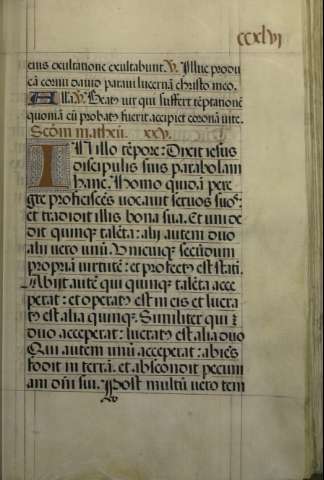 ccxlvi
eius exultatione exultabunt. V. Illuc produ
cā cornu dauid paraui lucernā christo meo.
Alla V. Beatꝰ uir qui suffert tēptationē
quoniā cū probatꝰ fuerit accipiet coronā uite.
Scdm̄ matheū. xxv.
In illo tēpore: Dixit iesus
discipulis suis parabolam
hanc. Homo quidā pere
gre proficiscēs uocauit seruos suos:
et tradidit illis bona sua. Et uni de
dit quinqꝫ talēta: alij autem duo
alij uero unū. Unicuiqꝫ secūdum
propriā uirtutē: et profectꝰ est statī.
Abijt autē qui quinqꝫ talēta acce
perat: et operatꝰ est in eis et lucra
tꝰ est alia quinqꝫ. Similiter qui
duo acceperat: lucratꝰ est alia duo
Qui autem unū acceperat: abiēs
fodit in terrā. et abscondit pecuni
am dn̄i sui. Post multū uero tem